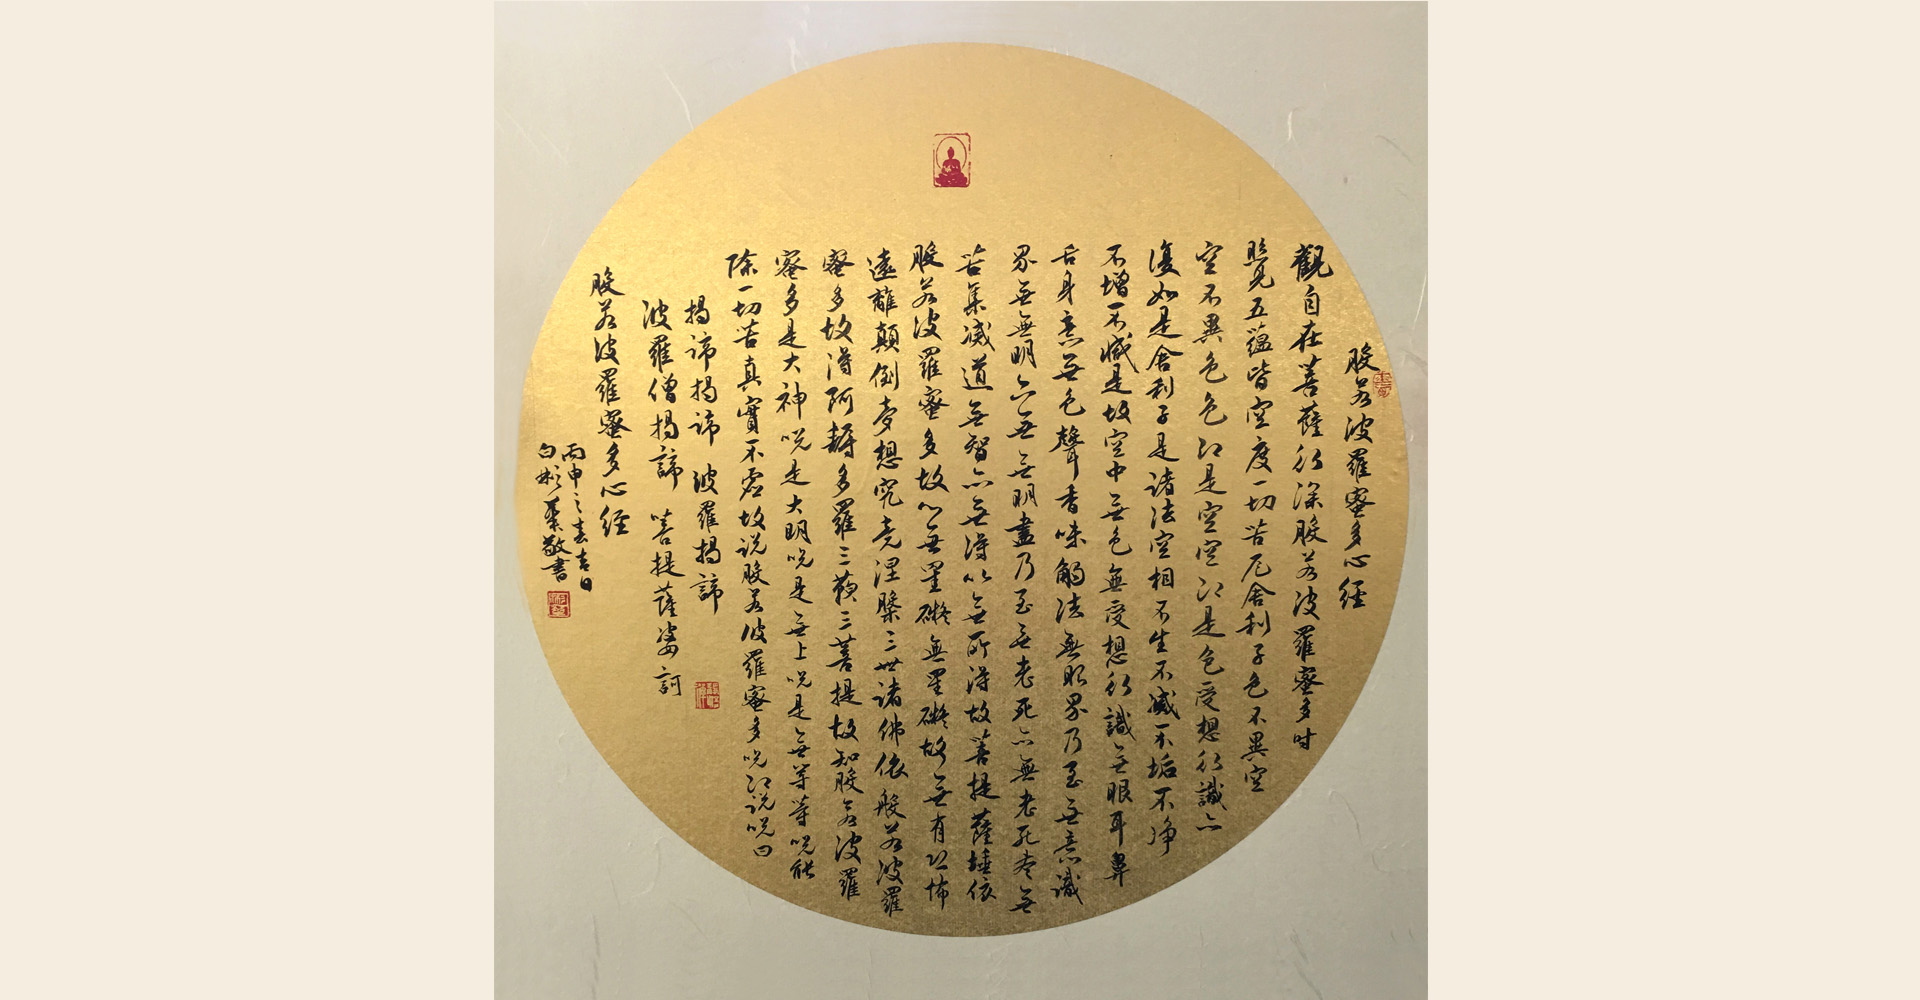 般若波羅蜜多心經
觀自在菩薩行深般若波羅蜜多时
照見五蕴皆空度一切苦厄舍利子色不異空
空不異色色即是空空即是色受想行識亦
復如是舍利子是諸法空相不生不滅不垢不净
不增不減是故空中無色無受想行識無眼耳鼻
舌身意無色聲香味觸法無眼界乃至無意識
界無無明亦無無明盡乃至無老死亦無老死盡無
苦集滅道無智亦無得以無所得故菩提薩埵依
般若波羅蜜多故心無罣礙無罣礙故無有恐怖
遠離顛倒夢想究竟涅槃三世諸佛依般若波羅
蜜多故得阿耨多羅三藐三菩提故知般若波羅
蜜多是大神咒是大明咒是無上咒是無等等咒能
除一切苦真實不虛故説般若波羅蜜多咒即説咒曰
揭諦揭諦 波羅揭諦
波羅僧揭諦 菩提薩婆訶
般若波羅蜜多心經
丙申之春吉日
白彬敬書